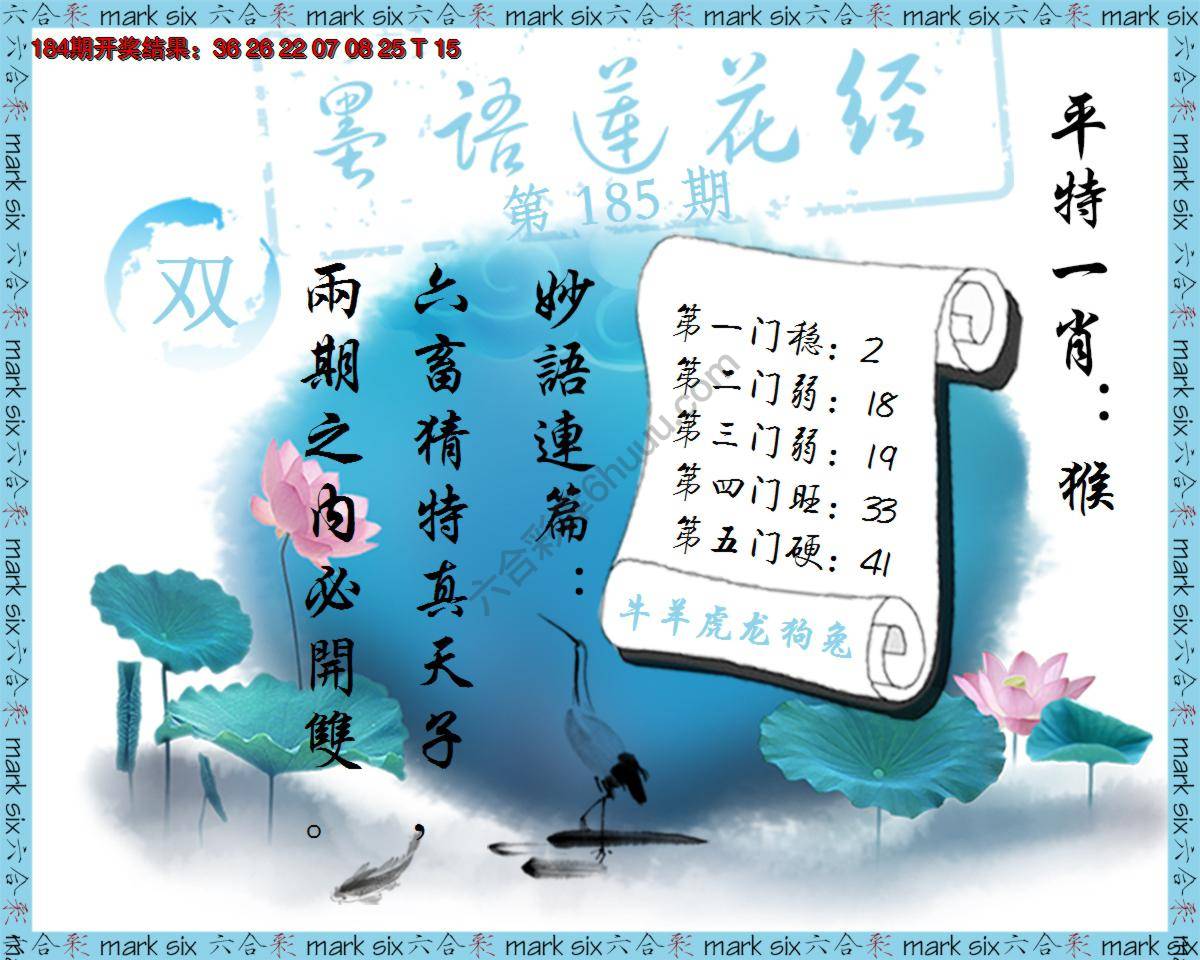 六合彩 mark six 六合彩 mark six 六合彩 mark six 六合彩 mark six 六合彩 mark six 六合彩 mark six
184期开奖结果：36 26 22 07 08 25 T 15
墨語蓮花经
第 185 期
双
平特一肖：猴
妙語連篇：
六畜猜特真天子，
兩期之内必開雙。
第一门稳：2
第二门弱：18
第三门弱：19
第四门旺：33
第五门硬：41
牛羊虎龙狗兔
六合彩 mark six 六合彩 mark six 六合彩 mark six 六合彩 mark six 六合彩 mark six 六合彩 mark six